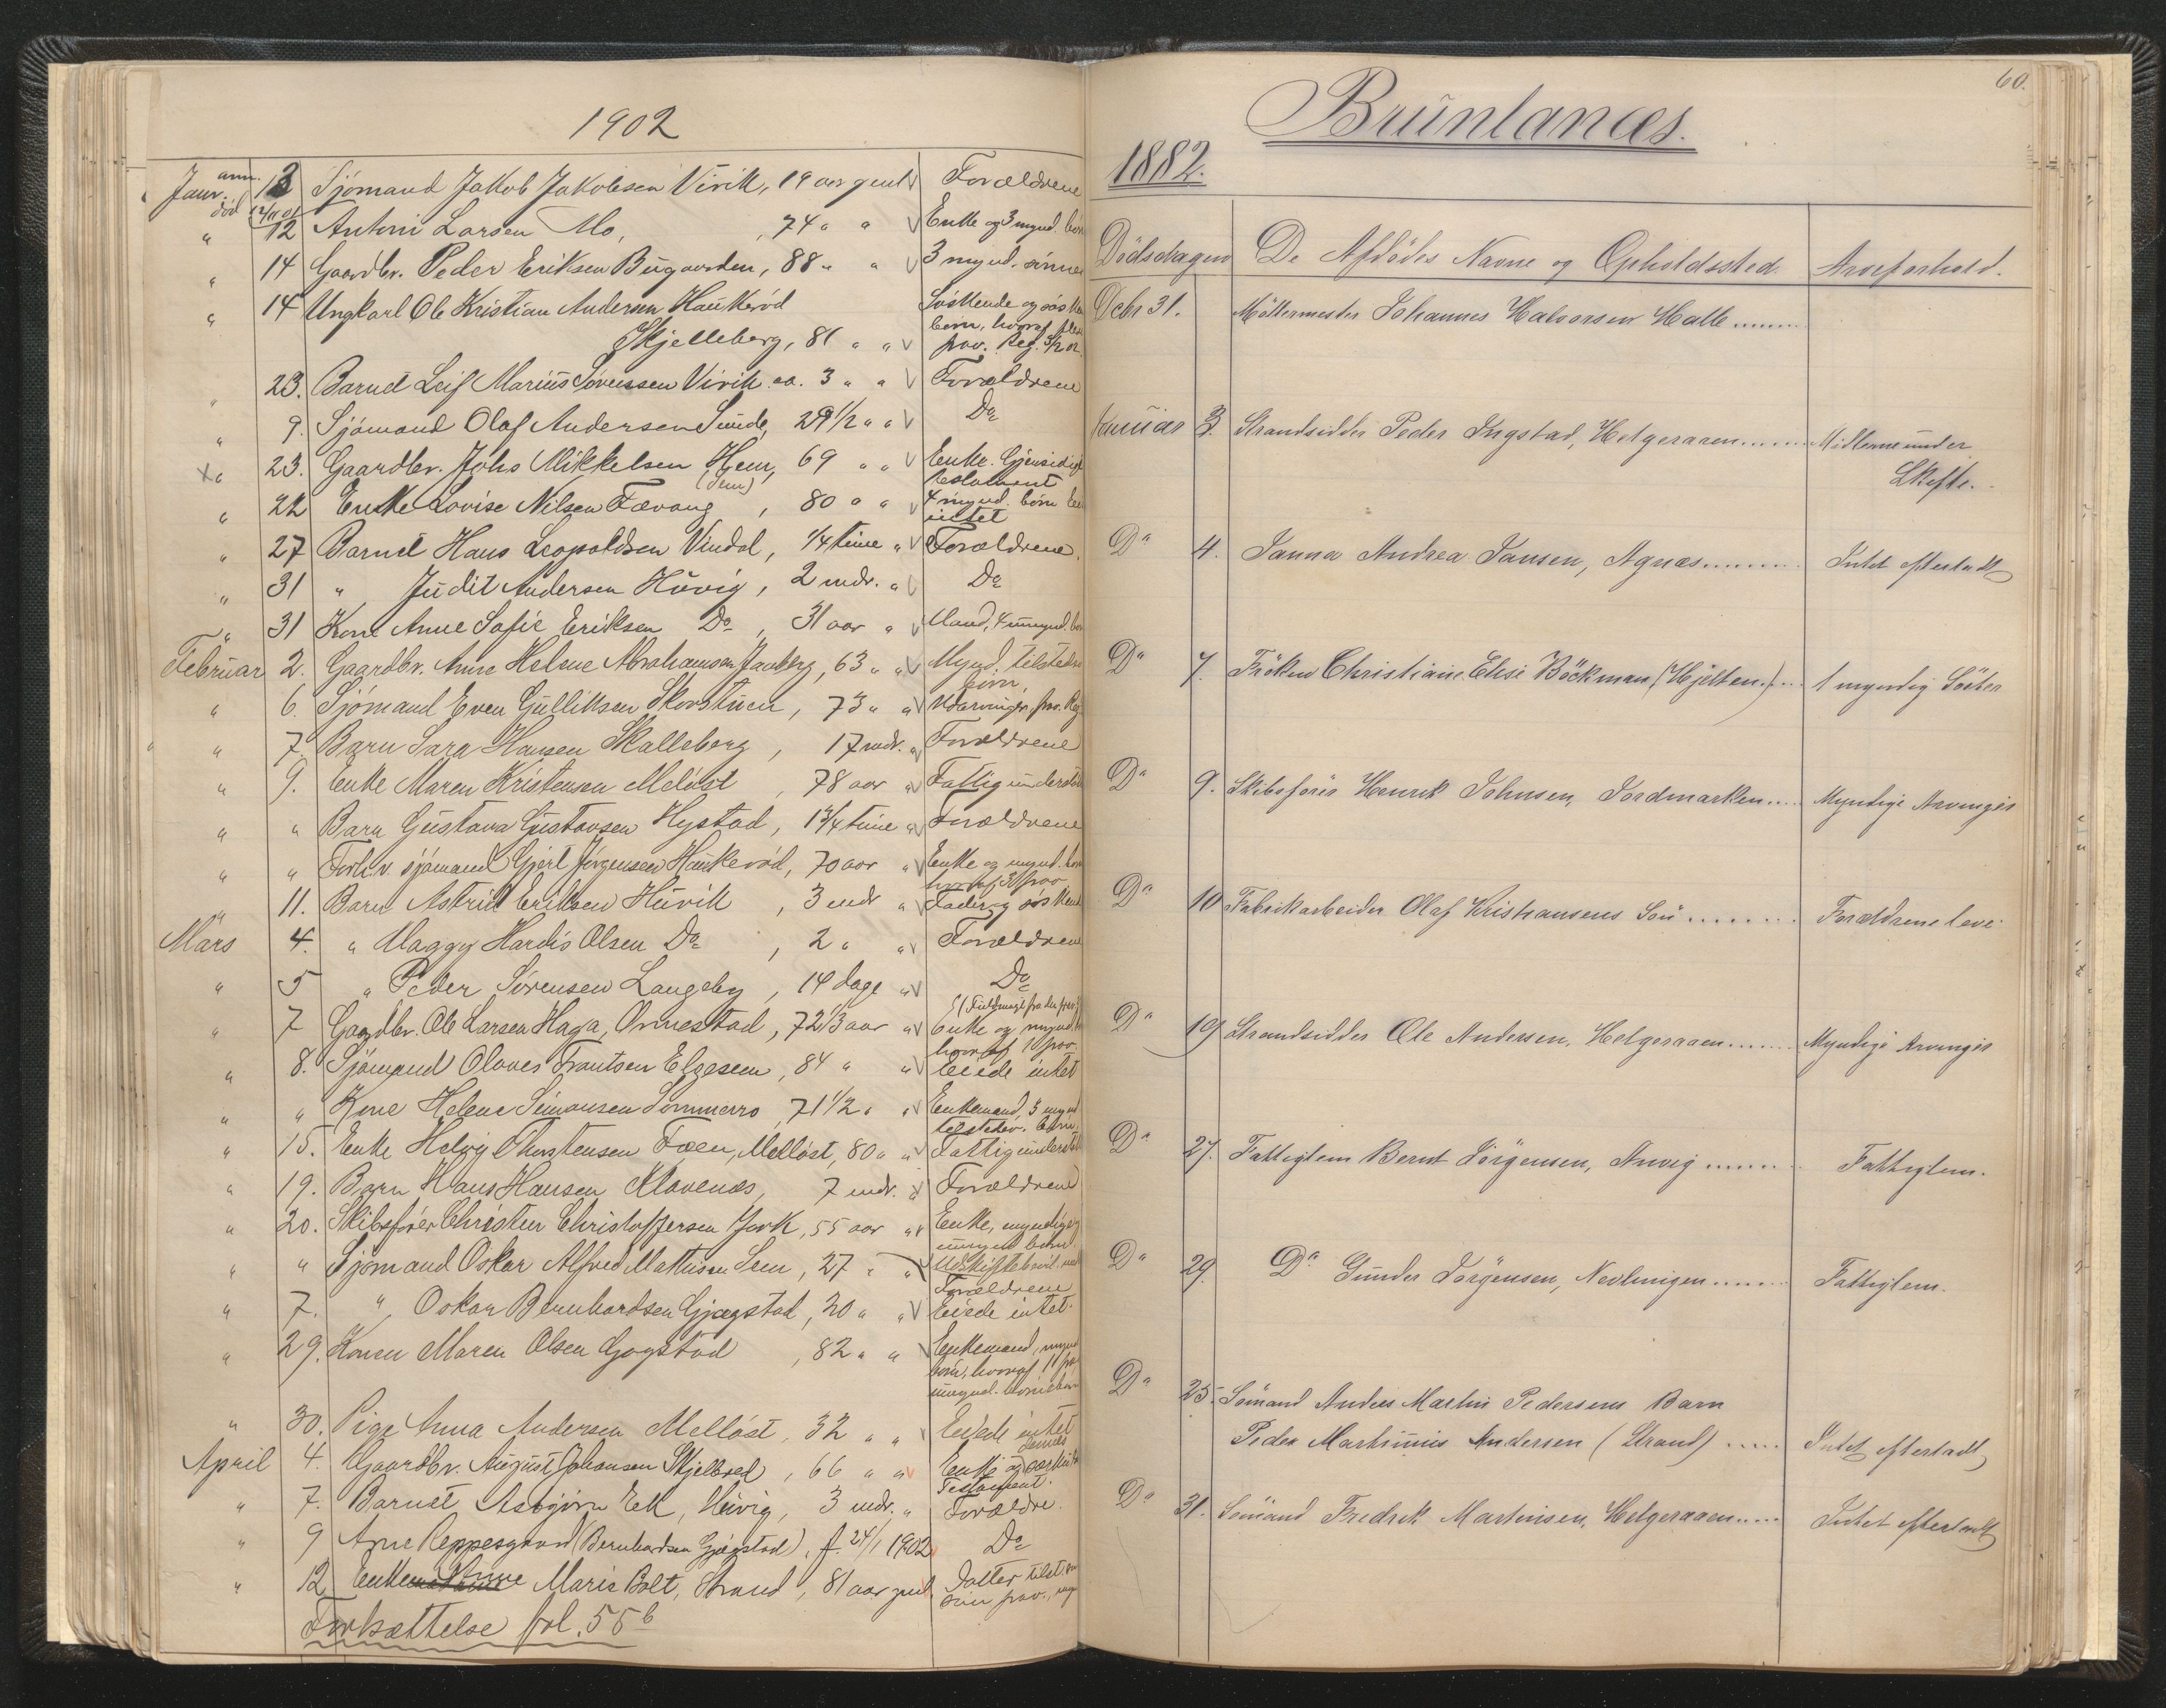 1902
Janr. anm. 13 Sjómand Jakob Jakobsen Virik, 19 aar gml. Forældrene
død 12/11 01
" 12 Antoni Larsen Mo, 74 " " Enke og 3 mynd. børn
" 14 Gaardbr. Peder Eriksen Bugaarden, 88 " " 3 mynd. sønner
" 14 Ungkarl Ole Kristian Andersen Haukerød
Skjelleberg, 81 " "
børn, hvoraf
frav. Reg.
" 23. Barnet Leif Marius Sørenssen Virik ca. 3 " " Forældrene
" 9. Sjómand Olaf Andersen Sunde, 29 1/2 " " Do
X " 23. Gaardbr. Johs Mikkelsen Hem, 69 " " Enke. Gjensidigt
(Sem) testament
" 22 Enke Lovise Nilsen Fævang, 80 " " 4 mynd. børn
intet
" 27 Barnet Hans Leopoldsen Vindal, 1/4 time " Forældrene.
" 31 " Judit Andersen Húvig, 2 mdr. " Do
" 31 Kone Anne Sofie Eriksen Do, 31 aar " Mand, 4 umynd. børn
Februar 2. Gaardbr. Anne Helene Abrahamsen Jauberg, 63 " " Mynd. tilstede
børn.
" 6. Sjómand Even Gulliksen Skorstuen, 73 " " Udarvinger frav. Reg.
" 7. Barn Sara Hansen Skalleberg, 17 mdr. " Forældrene
" 9. Enke Maren Kristensen Meløst, 78 aar " Fattigunderstøt
" " Barn Gustava Gustavsen Hystad, 1 3/4 time " Forældrene
" " Forh.v. sjómand Gjert Jørgensen Haukerød, 70 aar " Enke og mynd. børn
hvoraf 3 frav
" 11. Barn Astrid Eriksen Húvik, 3 mdr " Fader og søskend
Mars 4. " Maggy Hardis Olsen Do, 2 " " Forældrene
" 5 " Peder Sørensen Langeby, 14 dage " Do
" 7 Gaardbr. Ole Larsen Haga, Ormestad, 72 1/3 aar " Enke og mynd
hvoraf 1 frav.
" 8. Sjómand Olaves Frantsen Elgesem, 84 " " Eiede intet
" " Kone Helene Simonsen Sommerro, 71 1/2 " " Enkemand, 3 mynd
tilstedev. børn.
" 15. Enke Helvig Thorstensen Foen, Melløst, 80 " " Fattigunderstøt
" 19. Barn Hans Hansen Klavenæs, 7 mdr. " Forældrene
" 20. Skibsfører Christen Christoffersen York, 55 aar " Enke, myndige og
umynd børn.
" " Sjómand Oskar Alfred Mathisen Sem, 27 " "
Forældrene
" 7. " Oskar Bernhardsen Gjøgstad, 20 " " Eiede intet.
" 29. Konen Maren Olsen Gogstad, 82 " " Enkemand, mynd
børn, hvoraf 1 frav
umynd. børnebørn
" 30. Pige Anna Andersen Melløst, 32 " " Eiede intet
April 4. Gaardbr. August Johansen Skjelbred, 66 " " Enke og
Testament.
" 7. Barnet Asbjørn Eek, Húvig, 3 mdr. " Forældre.
" 9 Arne Reppesgaard (Bernhardsen Gjøgstad), f. 24/1 1902 Do
" 12 Enke Marie Bolt, Strand, 81 aar gml. Datter tilst.
Fortsættelse fol. 55 b
60.
Brunlanæs.
1882.
Dödsdagen De Afdödes Navne og Opholdssted. Arveforhold.
Debr 31. Möllermester Johannes Halvorsen Halle ........
Januar 3. Strandsidder Peder Ingstad, Helgeraaen ...... Midlerne under
Skifte.
Do 4. Janna Andrea Jansen, Agnæs ........ Intet efterladt
Do 7. Fröken Christiane Elise Böckman (Hjelten.) ... 1 myndig Söster
Do 9. Skibsförer Henrik Johnsen, Jordmarken .... Myndige Arvinger
Do 10 Fabrikarbeider Olaf Kristiansens Sön ........ Forældrene leve.
Do 19 Strandsidder Ole Andersen, Helgeraaen ...... Myndige Arvinger
Do 27. Fattiglem Bernt Jörgensen, Anvig ....... Fattiglem.
Do 29. Do Gunder Jörgensen, Nevlungen ....... Fattiglem.
Do 25. Sömand Anders Martin Pedersens Barn
Peder Martinius Andersen (Strand) ..... Intet efterladt
Do 31. Sömand Fredrik Martinsen, Helgeraaen ..... Intet efterladt